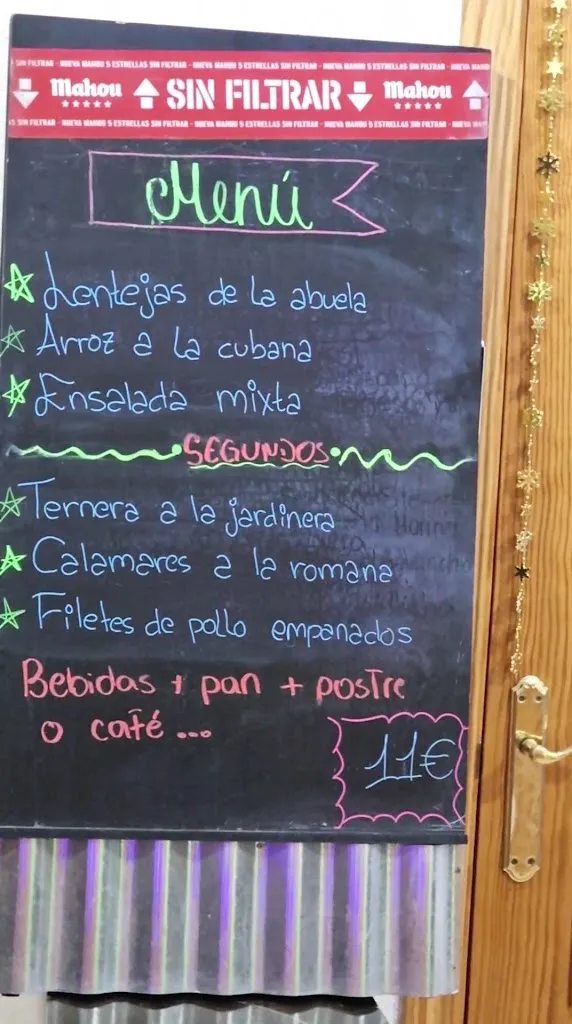 SIN FILTRAR - NUEVA MAHOU 5 ESTRELLAS SIN FILTRAR - NUEVA MAHOU 5 ESTRELLAS SIN FILTRAR - NUEVA MAHOU 5 ESTRELLAS SIN FILTRAR - NUEVA MAHOU
Mahou SIN FILTRAR Mahou
SIN FILTRAR - NUEVA MAHOU 5 ESTRELLAS SIN FILTRAR - NUEVA MAHOU 5 ESTRELLAS SIN FILTRAR - NUEVA MAHOU 5 ESTRELLAS SIN FILTRAR
Menú
Lentejas de la abuela
Arroz a la cubana
Ensalada mixta
SEGUNDOS
Ternera a la jardinera
Calamares a la romana
Filetes de pollo empanados
Bebidas + pan + postre
o café...
11€